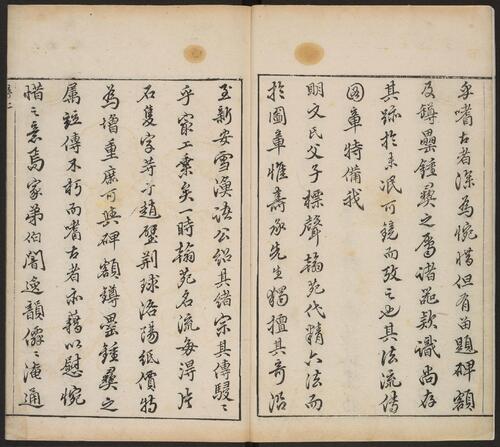 嗜古者深為惋惜但有留題碑額
及鐏罍鍾彝之屬諸器款識尚存
其跡於未泯可鏡而攷之也其法流傳
圖章特備我
明文氏父子標聲翰苑代精六法而
於圖章惟壽承先生獨擅其奇沿
至新安雪漁諸公紹其緒宗其傳駸〻
乎家工業矣一時翰苑名流每得片
石隻字等於趙璧荆球洛陽紙價特
為增重庶可與碑額鐏罍鍾彝之
属竝傳不朽而嗜古者亦藉以慰惋
惜之意焉家弟伯闇逸韻僊〻淹通